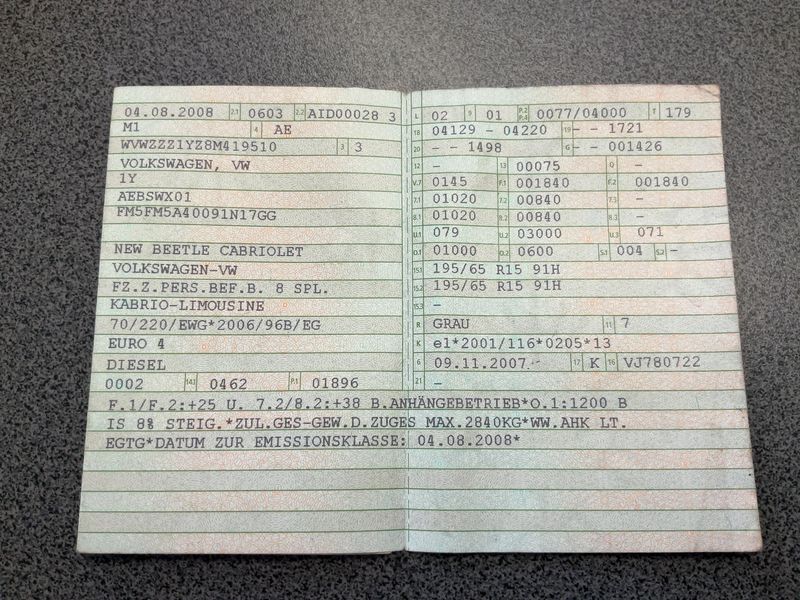 04.08.2008 2.1 0603 2.2 AID00028 3
M1 4 AE
WVWZZZ1YZ8M419510 3 3
VOLKSWAGEN, VW
1Y
AEBSWX01
FM5FM5A40091N17GG
NEW BEETLE CABRIOLET
VOLKSWAGEN-VW
FZ.Z.PERS.BEF.B. 8 SPL.
KABRIO-LIMOUSINE
70/220/EWG*2006/96B/EG
EURO 4
DIESEL
0002 14.1 0462 P.1 01896
L 02 9 01 P.2 P.4 0077/04000 T 179
18 04129 - 04220 19 - - 1721
20 - - 1498 G - - 001426
12 - 13 00075 Q -
V.7 0145 F.1 001840 F.2 001840
7.1 01020 7.2 00840 7.3 -
8.1 01020 8.2 00840 8.3 -
U.1 079 U.2 03000 U.3 071
O.1 01000 O.2 0600 S.1 004 S.2 -
15.1 195/65 R15 91H
15.2 195/65 R15 91H
15.3 -
R GRAU 11 7
K e1*2001/116*0205*13
6 09.11.2007 17 K 16 VJ780722
21 -
F.1/F.2:+25 U. 7.2/8.2:+38 B.ANHÄNGEBETRIEB*O.1:1200 B
IS 8% STEIG.*ZUL.GES-GEW.D.ZUGES MAX.2840KG*WW.AHK LT.
EGTG*DATUM ZUR EMISSIONSKLASSE: 04.08.2008*